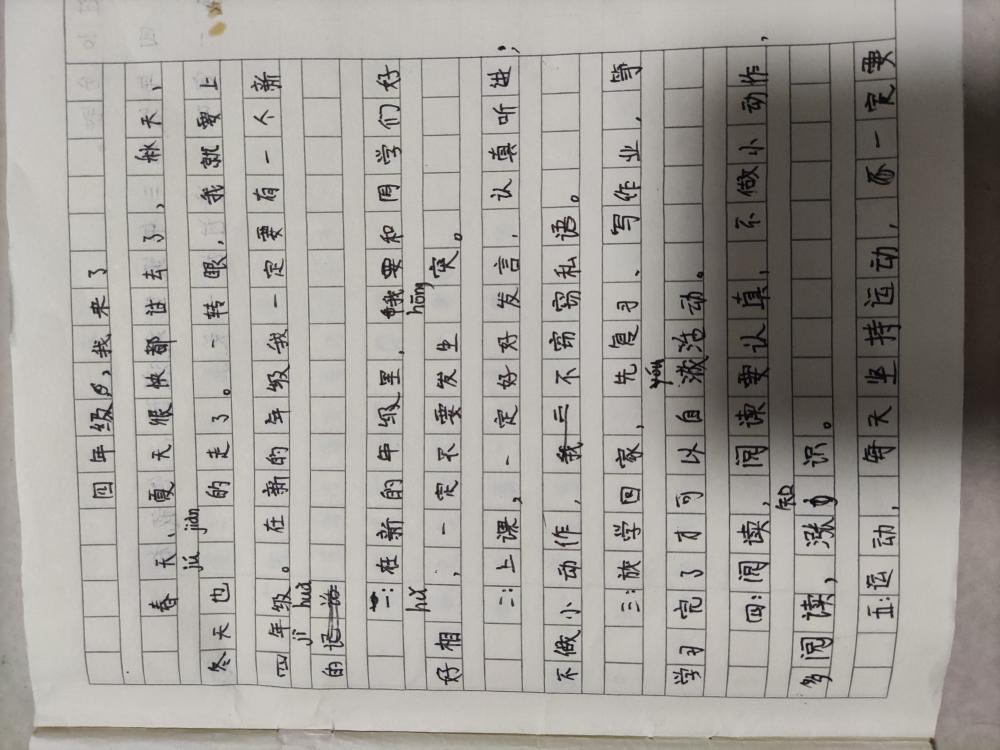 四年级,我来了
春天、夏天很快都过去了,秋天、
冬天也jújiàn的走了。一转眼,我就要上
四年级。在新的年级我一定要有一个新
的jìhuà
一:在新的年级里,我要和同学们好
好相hǔ,一定不要发生hōng突。
二:上课,一定好好发言,认真听讲,
不做小动作,不窃窃私语。
三:放学回家,先复习、写作业,等
学习完了才可以自yóu活动。
四:阅读,阅读要认真,不做小动作,
多阅读,涨知识。
五:运动,每天坚持运动,一定要